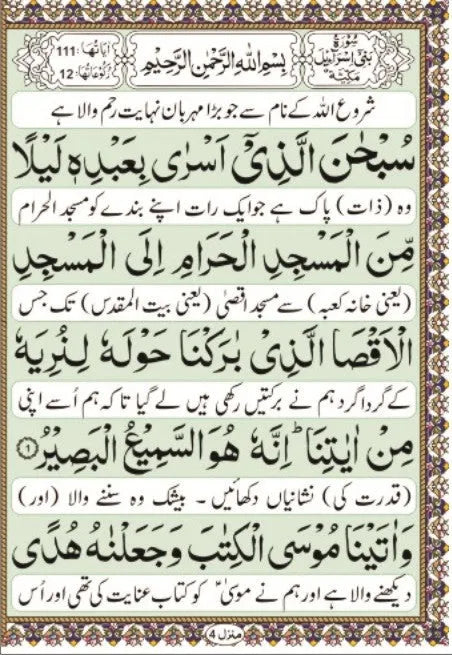 سُوْرَةُ بَنِیْۤ اِسْرَآءِیْلَ مَکِّیَّةٌ
بِسْمِ اللّٰهِ الرَّحْمٰنِ الرَّحِیْمِ
اٰیَاتُهَا: 111
رُکُوْعَاتُهَا: 12
شروع اللہ کے نام سے جو بڑا مہربان نہایت رحم والا ہے
سُبْحٰنَ الَّذِیْۤ اَسْرٰی بِعَبْدِهٖ لَیْلًا
وہ (ذات) پاک ہے جو ایک رات اپنے بندے کو مسجد الحرام
مِّنَ الْمَسْجِدِ الْحَرَامِ اِلَی الْمَسْجِدِ
(یعنی خانہ کعبہ) سے مسجد اقصیٰ (یعنی بیت المقدس) تک جس
الْاَقْصَا الَّذِیْ بٰرَکْنَا حَوْلَهٗ لِنُرِیَهٗ
کے گردا گرد ہم نے برکتیں رکھی ہیں لے گیا تا کہ ہم اُسے اپنی
مِنْ اٰیٰتِنَا ؕ اِنَّهٗ هُوَ السَّمِیْعُ الْبَصِیْرُ ۝۱
(قدرت کی) نشانیاں دکھائیں ۔ بیشک وہ سننے والا (اور)
وَاٰتَیْنَا مُوْسَی الْکِتٰبَ وَجَعَلْنٰهُ هُدًی
دیکھنے والا ہے اور ہم نے موسیٰؑ کو کتاب عنایت کی تھی اور اُس
منزل 4